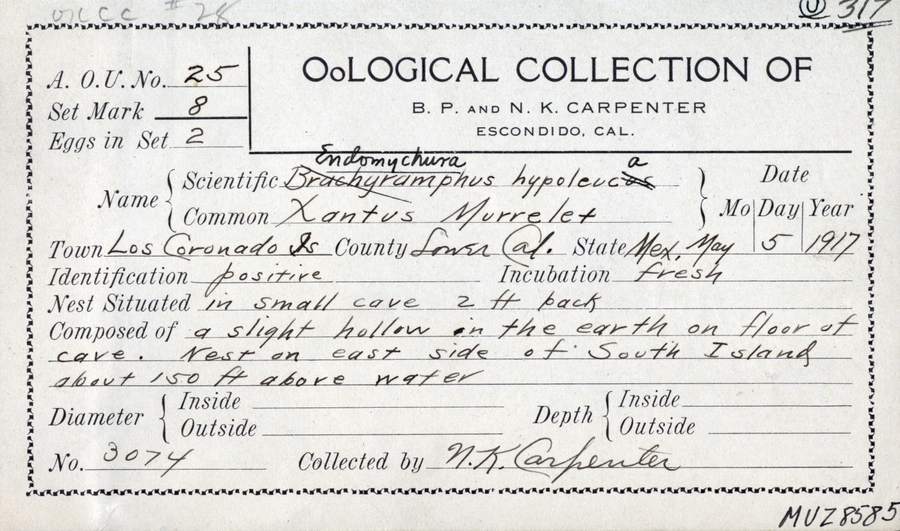 #28 317
A. O. U. No. 25
Set Mark 8
Eggs in Set 2
OoLOGICAL COLLECTION OF
B. P. AND N. K. CARPENTER
ESCONDIDO, CAL.
Endomychura a
Name Scientific Brachyramphus hypoleucos Date
Common Xantus Murrelet Mo Day Year
Town Los Coronado Is County Lower Cal. State Mex. May 5 1917
Identification positive Incubation fresh
Nest Situated in small cave 2 ft back
Composed of a slight hollow in the earth on floor of
cave. Nest on east side of South Island
about 150 ft above water
Diameter Inside Depth Inside
Outside Outside
No. 3074 Collected by N.K. Carpenter
MUZ8585